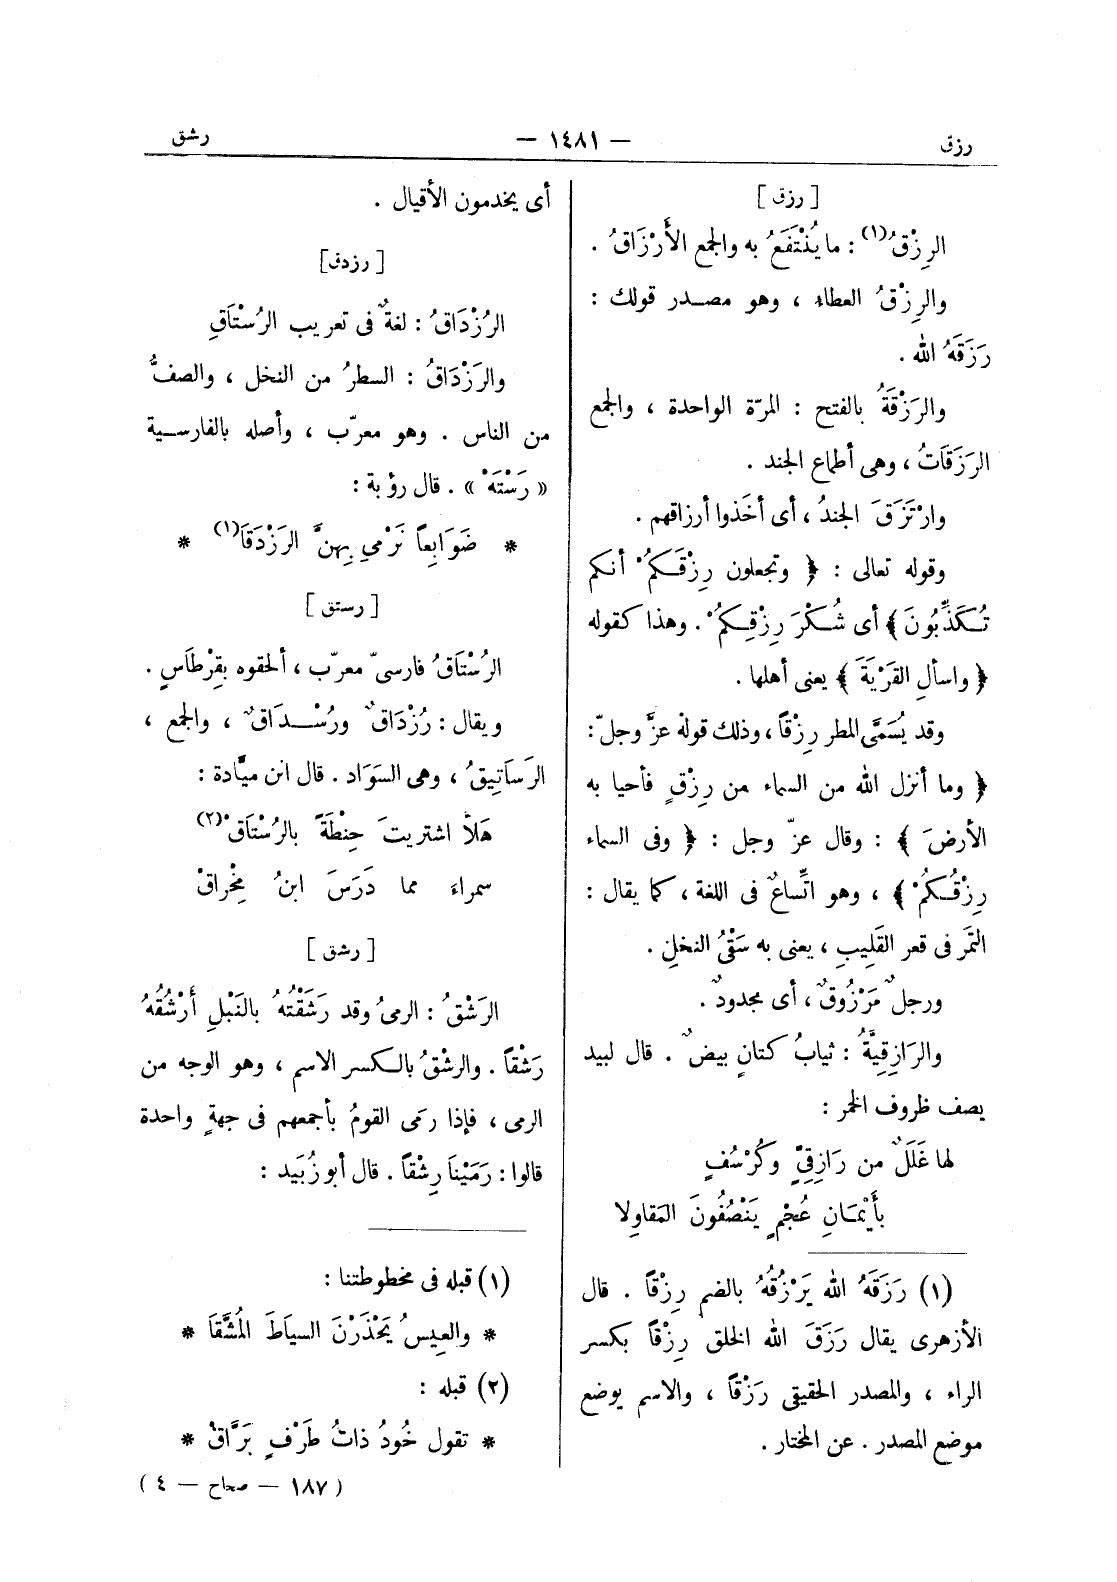 رزق
— ١٤٨١ —
رشق
[ رزق ]
الرِزْقُ(١) : ما يُنْتَفَعُ به والجمع الأَرْزَاقُ .
والرِزْقُ العطاء ، وهو مصدر قولك :
رَزَقَهُ الله .
والرَزْقَةُ بالفتح : المرّة الواحدة ، والجمع
الرَزَقَاتُ ، وهى أطماع الجند .
وارْتَزَقَ الجندُ ، أى أخَذوا أرزاقهم .
وقوله تعالى : ﴿ وتجعلون رِزْقَكُمْ أنكم
تُكَذِّبُونَ ﴾ أى شُكْرَ رِزْقِكُمْ . وهذا كقوله
﴿ واسألِ القَرْيَةَ ﴾ يعنى أهلها .
وقد يُسَمَّى المطر رِزْقاً ، وذلك قولهُ عزَّ وجلّ :
﴿ وما أنزل الله من السماء من رِزْقٍ فأحيا به
الأرضَ ﴾ : وقال عزّ وجل : ﴿ وفى السماء
رِزْقُكُمْ ﴾ ، وهو اتِّساعٌ فى اللغة ، كما يقال :
التمَر فى قعر القَلِيبِ ، يعنى به سَقْىُ النخلِ .
ورجلٌ مَرْزُوقٌ ، أى مجدودٌ .
والرَازِقِيَّةُ : ثيابُ كتانٍ بيضٌ . قال لبيد
يصف ظروف الخمر :
لها غَلَلٌ من رَازِقِيٍّ وكُرْسُفٍ
بأَيْمَانِ عُجْمٍ يَنْصُفُونَ المَقاوِلا
(١) رَزَقَهُ الله يَرْزُقُهُ بالضم رِزْقاً . قال
الأزهرى يقال رَزَقَ الله الخلق رِزْقاً بكسر
الراء ، والمصدر الحقيقى رَزْقاً ، والاسم يوضع
موضع المصدر . عن المختار .
أى يخدمون الأقيال .
[ رزدق ]
الرُزْدَاقُ : لغةٌ فى تعريب الرُسْتَاقِ
والرَزْدَاقُ : السطرُ من النخل ، والصفُّ
من الناس . وهو معرّب ، وأصله بالفارسية
« رَسْتَهْ » . قال رؤبة :
* ضَوَابِعاً نَرْمِي بِهِنَّ الرَزْدَقَا(١) *
[ رستق ]
الرُسْتَاقُ فارسىّ معرّب ، ألحقوه بقِرْطَاسٍ .
ويقال : رُزْدَاقٌ ورُسْدَاقٌ ، والجمع ،
الرَسَاتِيقُ ، وهى السَوَاد . قال ابن ميَّادة :
هَلاَّ اشتريتَ حِنْطَةً بالرُسْتَاقْ(٢)
سمراءَ مما دَرَسَ ابنُ مِخْراقْ
[ رشق ]
الرَشْقُ : الرمىُ وقد رَشَقْتُهُ بالنَبْلِ أَرْشُقُهُ
رَشْقاً . والرشْقُ بالكسر الاسم ، وهو الوجه من
الرمى ، فإذا رمَى القومُ بأجمعهم فى جهةٍ واحدة
قالوا : رَمَيْنَا رِشْقاً . قال أبو زُبَيد :
(١) قبله فى مخطوطتنا :
* والعِيسُ يَحْذَرْنَ السيَاطَ المُشَّقَا *
(٢) قبله :
* تقول خُودُ ذاتُ طَرْفٍ بَرَّاقْ *
( ١٨٧ — صحاح — ٤ )